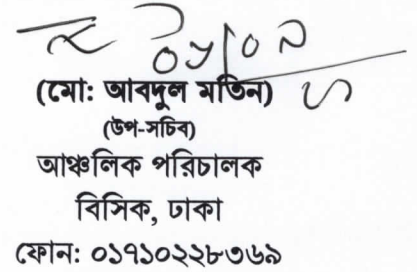 (মো: আবদুল মতিন)
(উপ-সচিব)
আঞ্চলিক পরিচালক
বিসিক, ঢাকা
ফোন: ০১৭১০২২৮৩৬৯